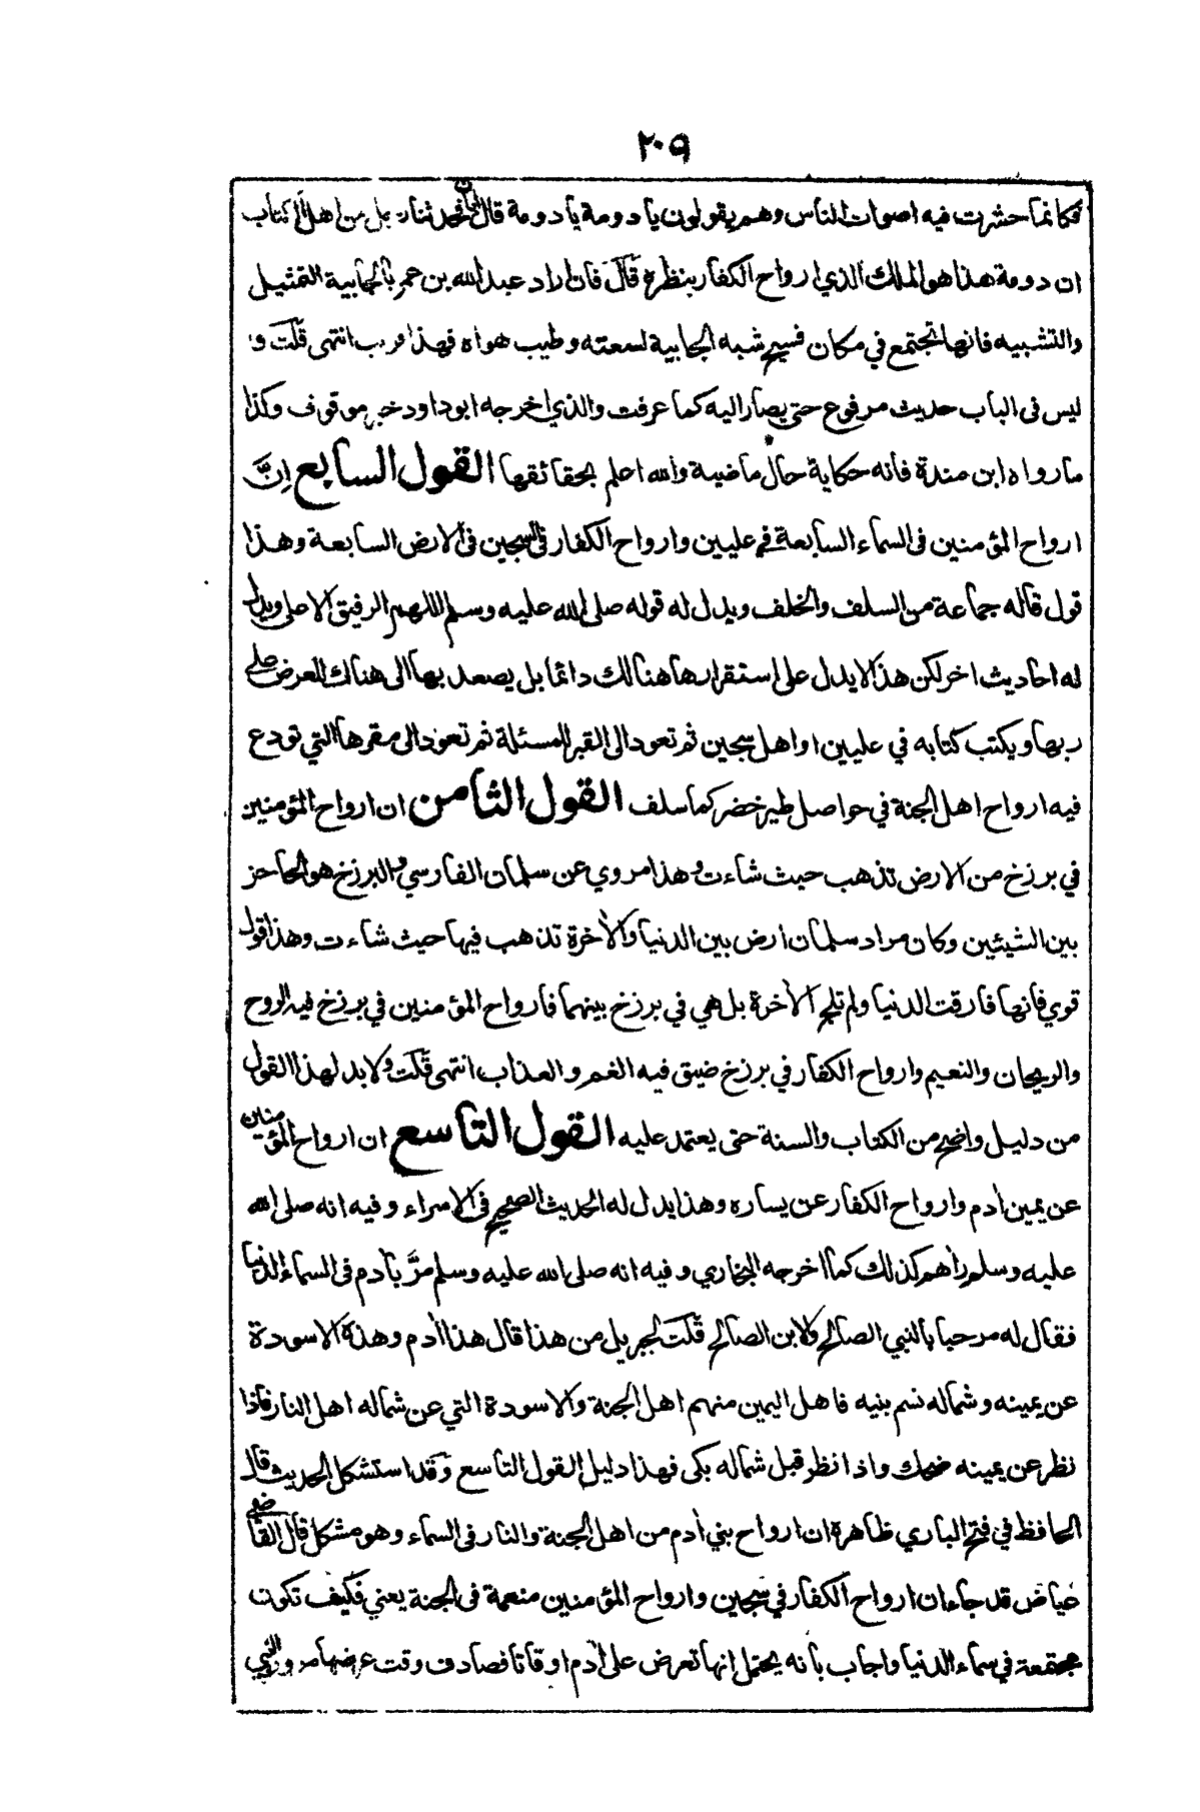 ٢٠٩
فكانما حشرت فيه اصوات الناس وهم يقولون يا دومة يا دومة قال ابان فحدثنا رجل من اهل الكتاب
ان دومة هذا هو الملك الذي ارواح الكفار بنظره قال فان اراد عبد الله بن عمر بالجابية التمثيل
والتشبيه فانها تجتمع في مكان فسيح شبه الجابية لسعته وطيب هواه فهذا قريب انتهى قلت و
ليس فى الباب حديث مرفوع حتى يصار اليه كما عرفت والذي اخرجه ابو داود خبر موقوف وكذا
ما رواه ابن مندة فانه حكاية حال ماضية والله اعلم بحقائقها القول السابع إنَّ
ارواح المؤمنين فى السماء السابعة في عليين وارواح الكفار في السجين فى الارض السابعة وهذا
قول قاله جماعة من السلف والخلف ويدل له قوله صلى الله عليه وسلم اللهم الرفيق الاعلى ويدل
له احاديث اخر لكن هذا لا يدل على استقرارها هنالك دائما بل يصعد بها الى هناك للعرض على
ربها ويكتب كتابه في عليين او اهل سجين ثم تعود الى القبر للمسئلة ثم تعود الى مقرها التي تودع
فيه ارواح اهل الجنة في حواصل طير خضر كما سلف القول الثامن ان ارواح المؤمنين
في برزخ من الارض تذهب حيث شاءت وهذا مروي عن سلمان الفارسي والبرزخ هو الحاجز
بين الشيئين وكان مراد سلمان ارض بين الدنيا والأخرة تذهب فيها حيث شاءت وهذا قول
قوي فانها فارقت الدنيا ولم تلج الأخرة بل هي في برزخ بينهما فارواح المؤمنين في برزخ فيه الروح
والريحان والنعيم وارواح الكفار في برزخ ضيق فيه الغم والعذاب انتهى قلت ولا بد لهذا القول
من دليل واضح من الكتاب والسنة حتى يعتمد عليه القول التاسع ان ارواح المؤمنين
عن يمين أدم وارواح الكفار عن يساره وهذا يدل له الحديث الصحيح فى الاسراء وفيه انه صلى الله
عليه وسلم رأهم كذلك كما اخرجه البخاري وفيه انه صلى الله عليه وسلم مرَّ بأدم فى السماء الدنيا
فقال له مرحبا بالنبي الصالح والابن الصالح قلت لجبريل من هذا قال هذا أدم وهذه الاسودة
عن يمينه وشماله نسم بنيه فاهل اليمين منهم اهل الجنة والاسودة التي عن شماله اهل النار فاذا
نظر عن يمينه ضحك واذا نظر قبل شماله بكى فهذا دليل القول التاسع وقد استشكل الحديث قال
الحافظ في فتح الباري ظاهره ان ارواح بني أدم من اهل الجنة والنار فى السماء وهو مشكل قال القاضي
عياض قد جاء ان ارواح الكفار في سجين وارواح المؤمنين منعمة فى الجنة يعني فكيف تكون
مجتمعة في سماء الدنيا واجاب بأنه يحتمل انها تعرض على أدم اوقاتا فصادف وقت عرضها مرور النبي